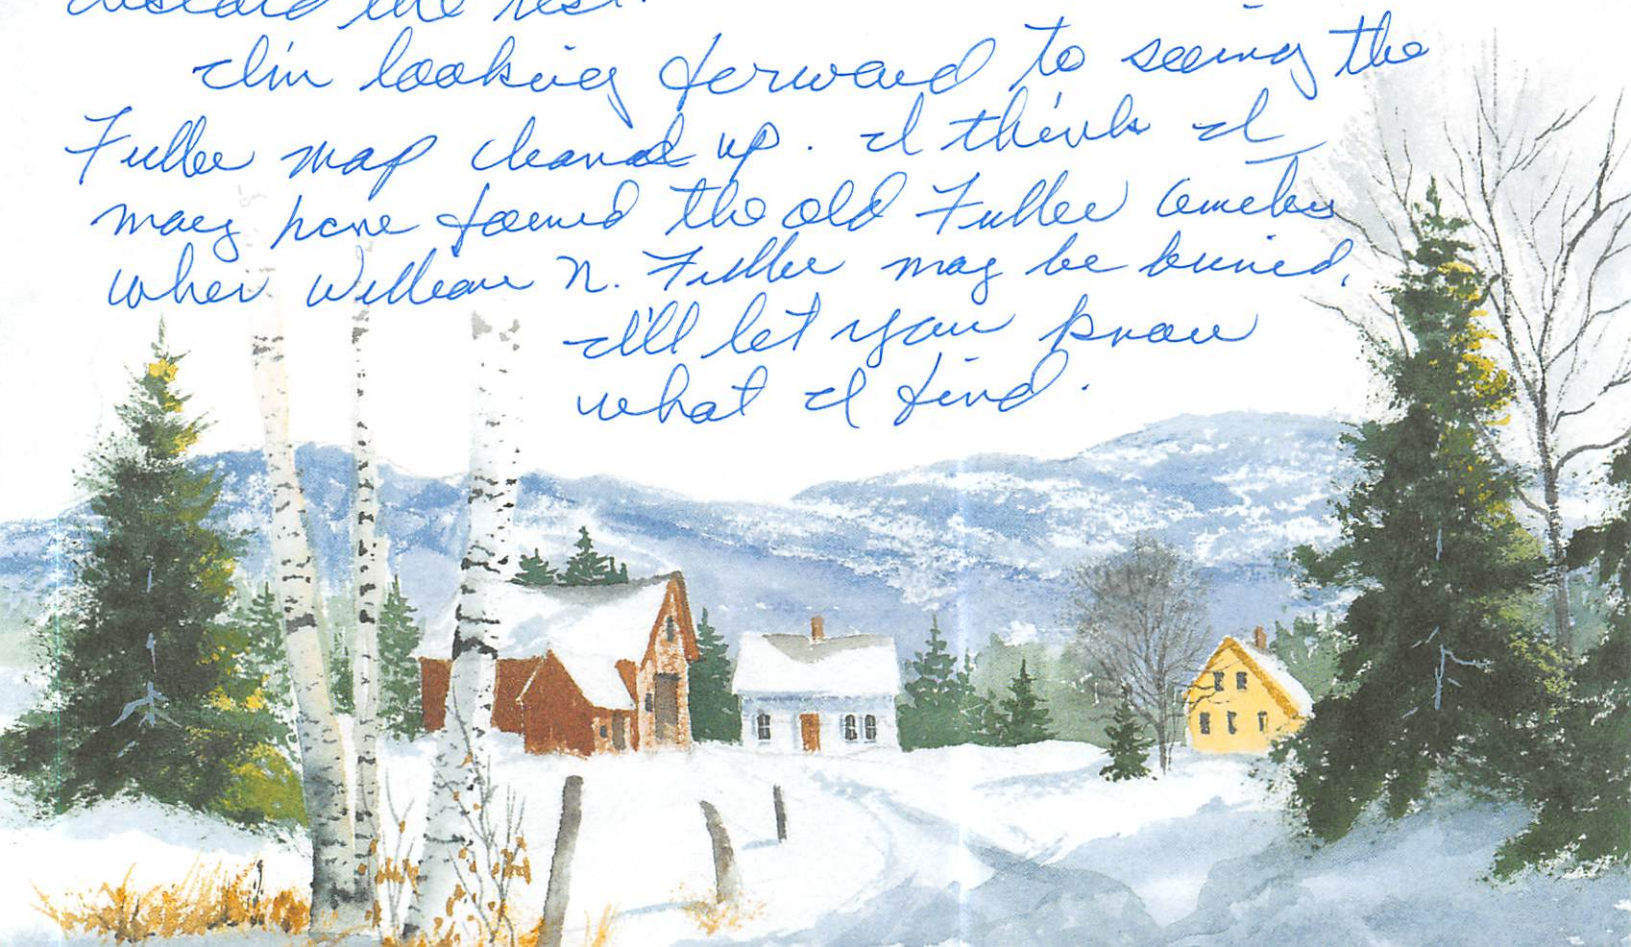 discard the rest.
I'm looking forward to seeing the
Fuller map cleaned up. I think I
may have found the old Fuller cemetery
where William N. Fuller may be buried.
I'll let you know
what I find.